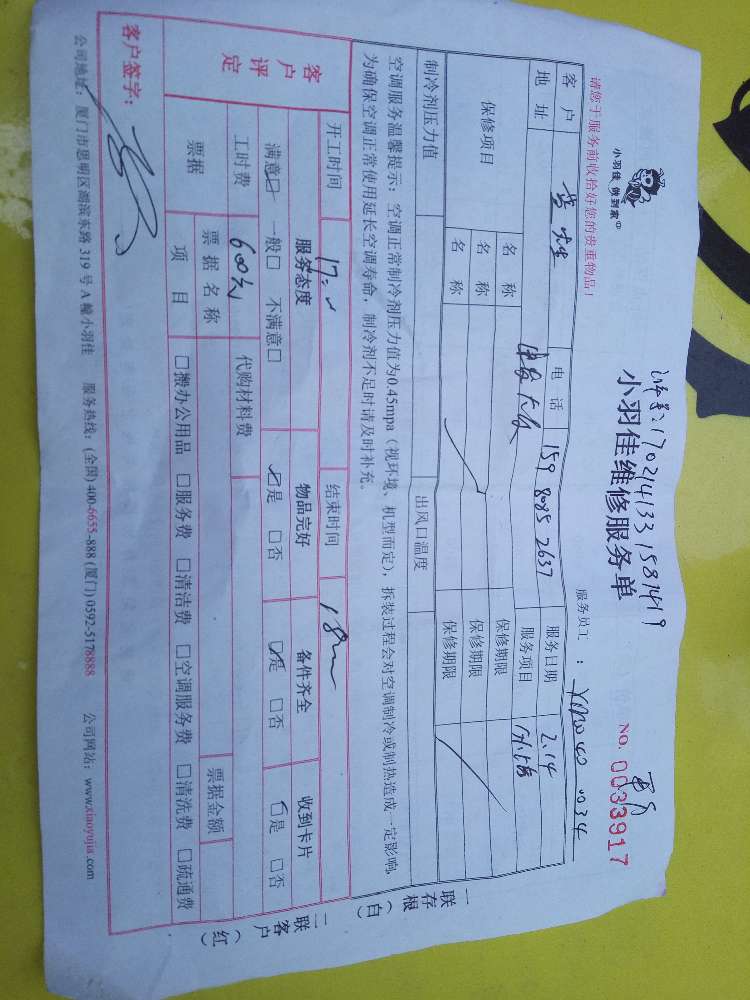 小羽佳 做到家
单号:1702141331581419
小羽佳维修服务单
NO. 0033917
请您于服务前收拾好您的贵重物品!
服务员工:
客户 先生 电话 159 8085 2637 服务日期 2.14
地址 服务项目
保修项目 名称 保修期限
名称 保修期限
名称 保修期限
制冷剂压力值 出风口温度
空调服务温馨提示:空调正常制冷剂压力值为0.45mpa(视环境、机型而定),拆装过程会对空调制冷或制热造成一定影响,
为确保空调正常使用延长空调寿命,制冷剂不足时请及时补充。
开工时间 结束时间
客户评定 服务态度 物品完好 备件齐全 收到卡片
满意□ 一般□ 不满意□ □是 □否 □是 □否 □是 □否
工时费 600元 代购材料费
票据 票据名称 票据金额
项目 □搬办公用品 □服务费 □清洁费 □空调服务费 □清洗费 □疏通费
客户签字:
公司地址:厦门市思明区湖滨东路319号A幢小羽佳 服务热线:(全国)400-6655-888 (厦门)0592-5178888 公司网站:www.xiaoyujia.com
一联存根(白)
二联客户(红)